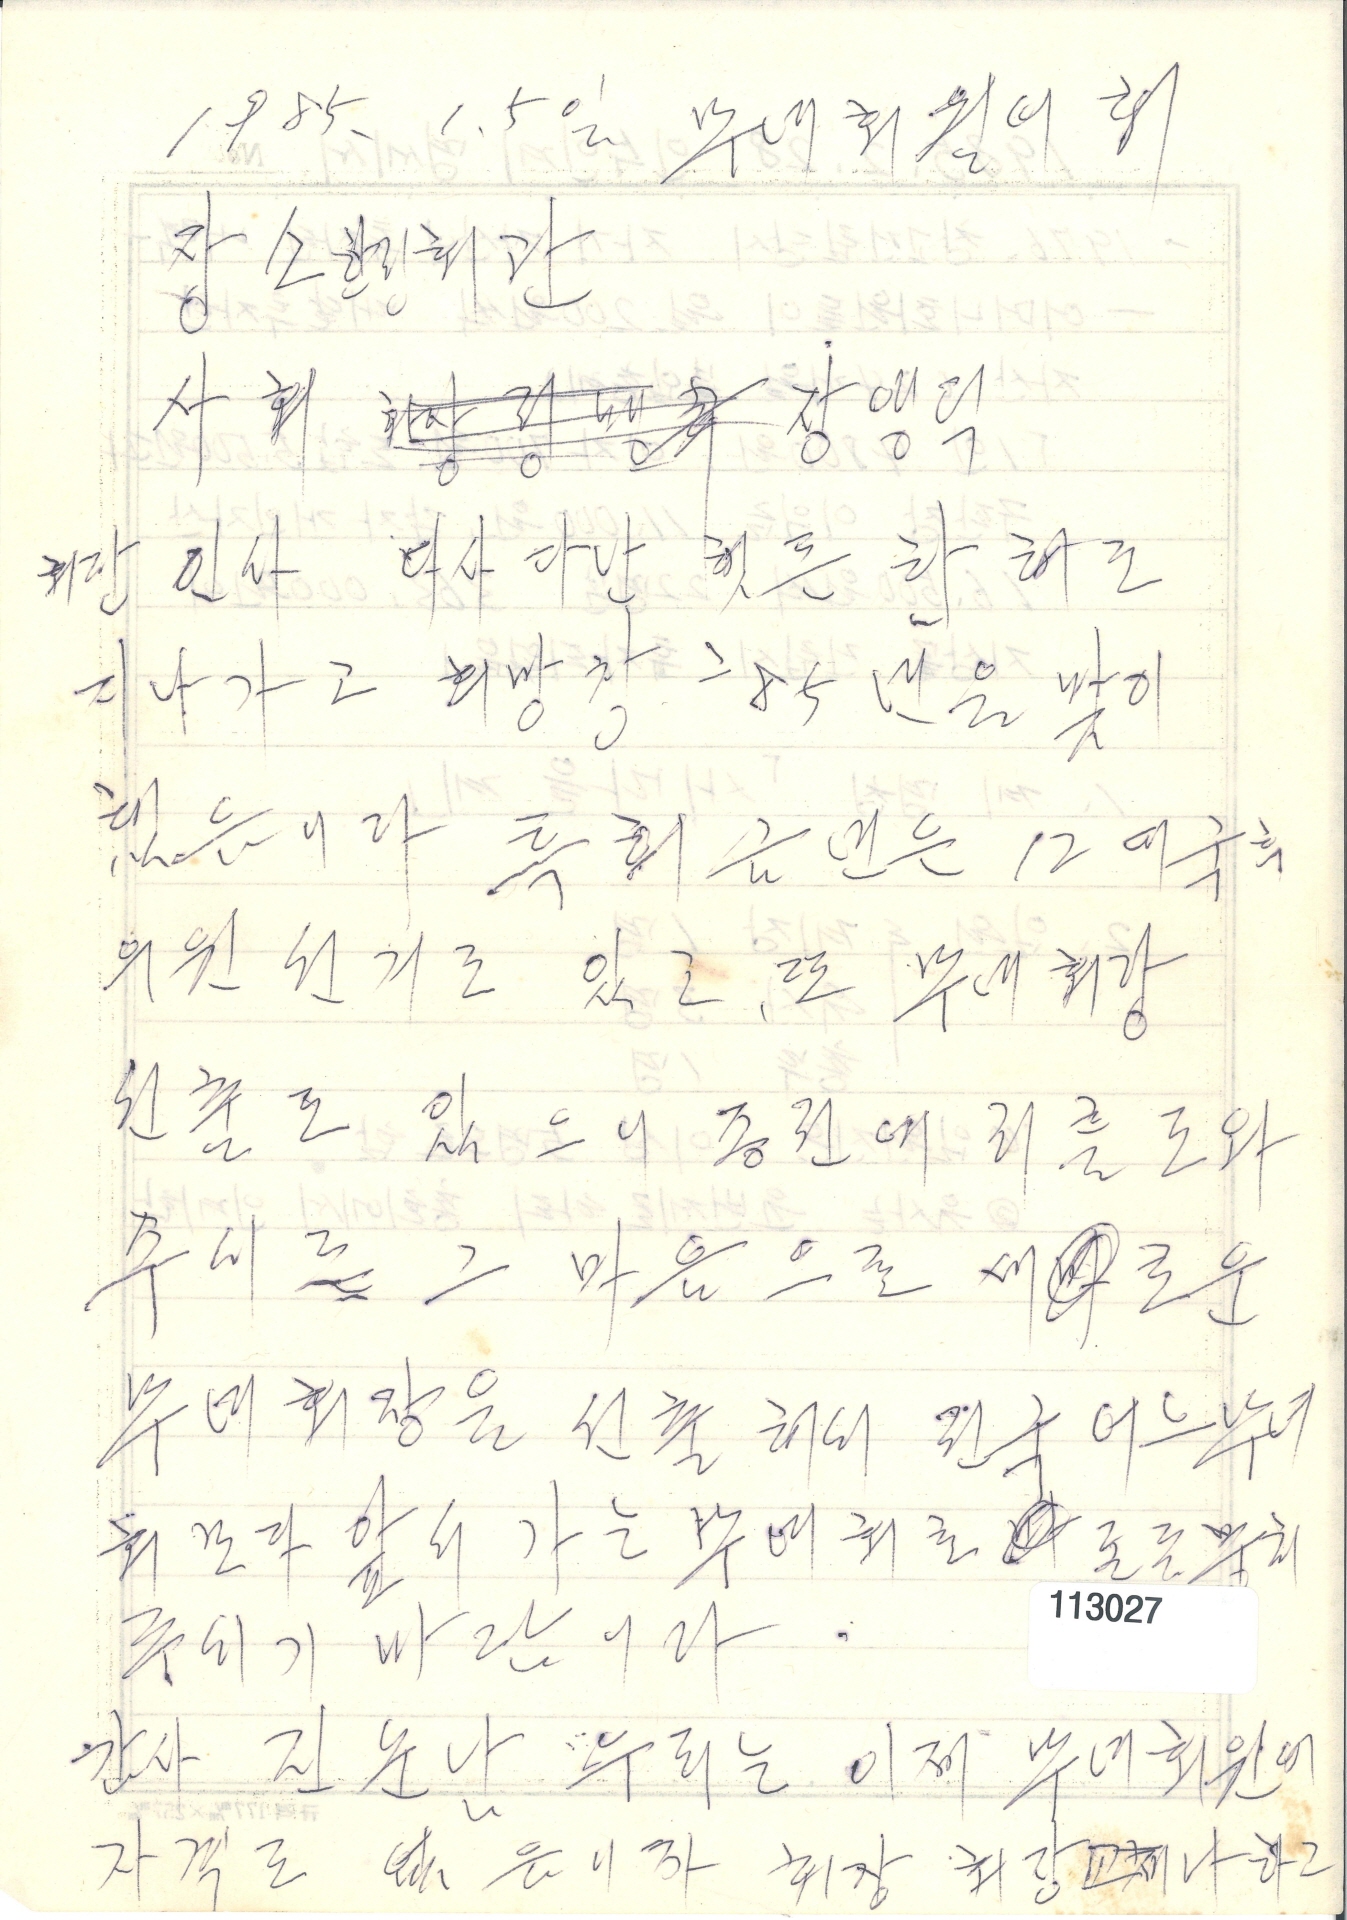 1985. 1. 5일 부녀회 월이 회
장소 한강회관
사회 장영덕
회장 인사 다사다난 했든 한 해도
지나가고 희망찬 85년을 맞이
했읍니다 특히 금년은 12대 국회
의원 선거도 있고 또 부녀회장
선출도 있으니 종전에 저를 도와
주시든 그 마음으로 새로운
부녀회장을 선출해서 전국 어느 부녀
회보다 앞서가는 부녀회로 도모하
주시기 바랍니다.
감사 진순남 우리는 이제 부녀회원에
자격도 없은니까 회장 회장 교체나 하고
113027